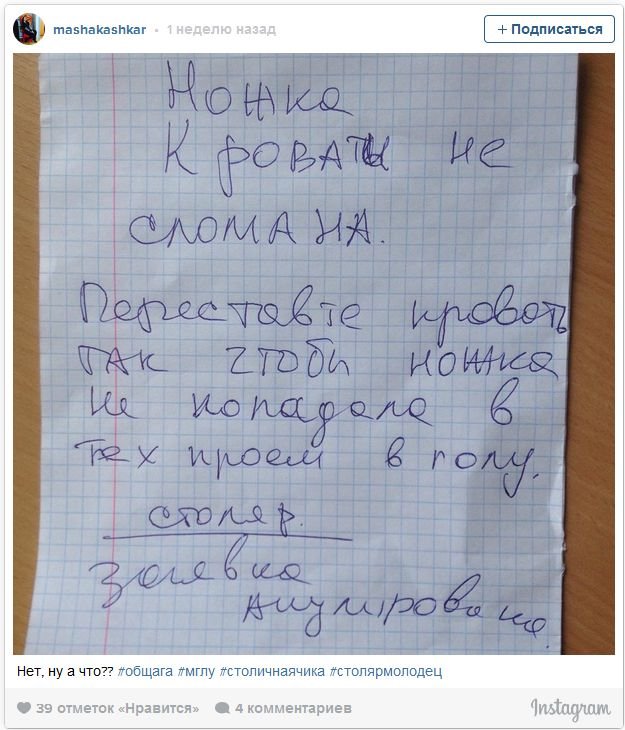 mashakashkar • 1 неделю назад
+ Подписаться
Ножка
Кровати не
сломана.
Переставте кровать
так чтоби ножка
не попадала в
тех проем в полу.
столяр.
Заявка
Анулирована.
Нет, ну а что?? #общага #мглу #столичнаячика #столярмолодец
39 отметок «Нравится» 4 комментариев
Instagram